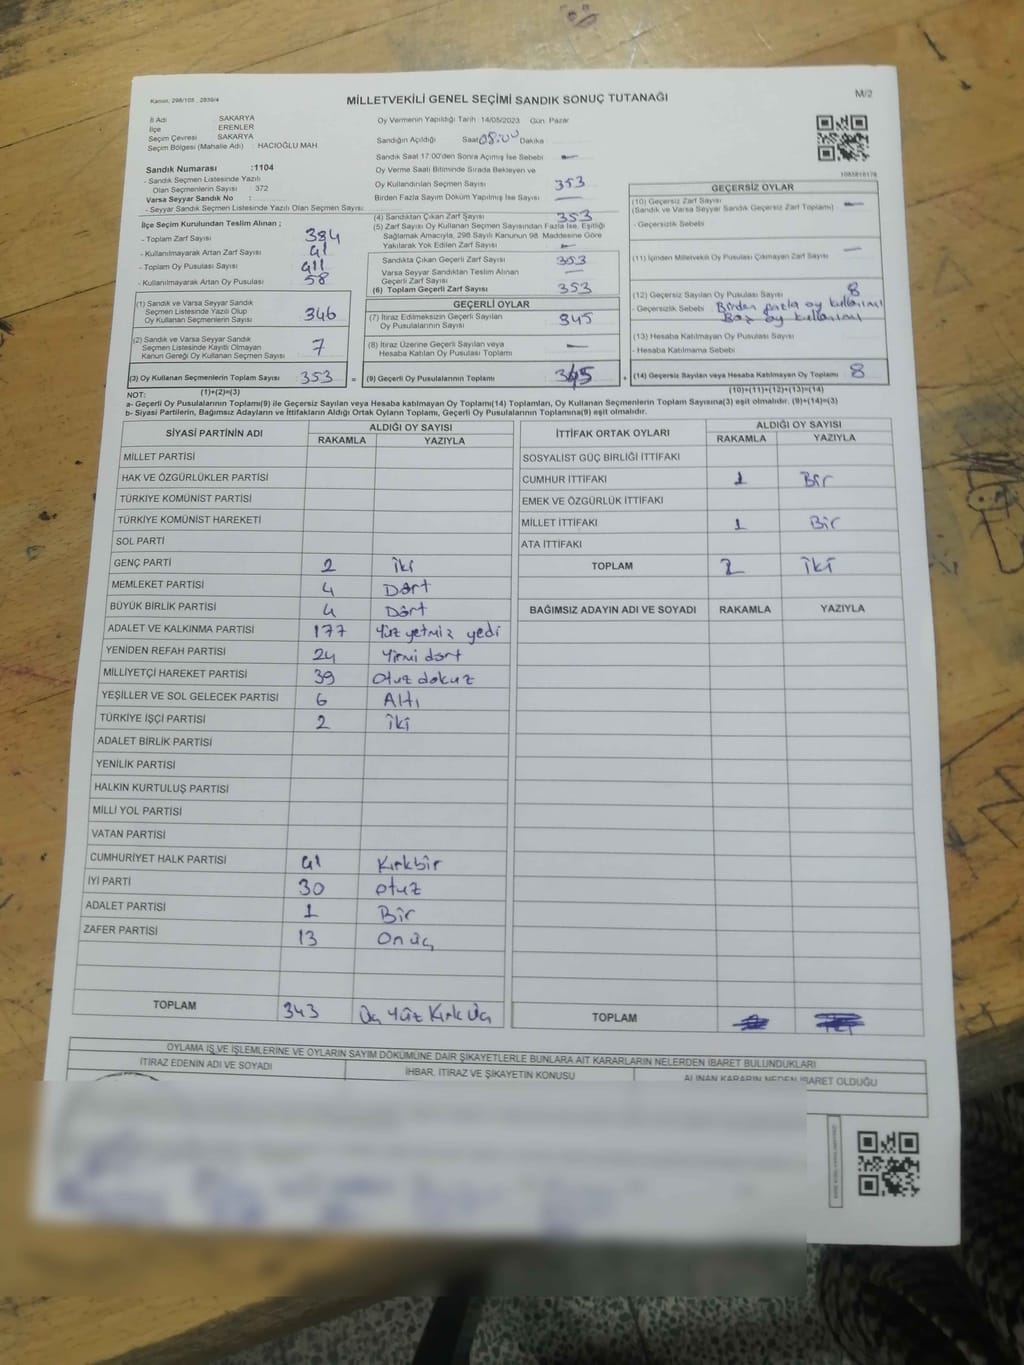 Kanun: 298/105 , 2839/4
MİLLETVEKİLİ GENEL SEÇİMİ SANDIK SONUÇ TUTANAĞI
M/2
İl Adı SAKARYA
İlçe ERENLER
Seçim Çevresi SAKARYA
Seçim Bölgesi (Mahalle Adı) : HACIOĞLU MAH.
Sandık Numarası :1104
- Sandık Seçmen Listesinde Yazılı
Olan Seçmenlerin Sayısı : 372
Varsa Seyyar Sandık No :
- Seyyar Sandık Seçmen Listesinde Yazılı Olan Seçmen Sayısı:
Oy Vermenin Yapıldığı Tarih 14/05/2023 Gün Pazar
Sandığın Açıldığı Saat 08:00 Dakika
Sandık Saat 17:00'den Sonra Açılmış İse Sebebi —
Oy Verme Saati Bitiminde Sırada Bekleyen ve
Oy Kullandırılan Seçmen Sayısı 353
Birden Fazla Sayım Döküm Yapılmış İse Sayısı —
1083818178
İlçe Seçim Kurulundan Teslim Alınan ;
- Toplam Zarf Sayısı 394
- Kullanılmayarak Artan Zarf Sayısı 41
- Toplam Oy Pusulası Sayısı 411
- Kullanılmayarak Artan Oy Pusulası 58
(1) Sandık ve Varsa Seyyar Sandık
Seçmen Listesinde Yazılı Olup
Oy Kullanan Seçmenlerin Sayısı 346
(2) Sandık ve Varsa Seyyar Sandık
Seçmen Listesinde Kayıtlı Olmayan
Kanun Gereği Oy Kullanan Seçmen Sayısı 7
(3) Oy Kullanan Seçmenlerin Toplam Sayısı 353 =
(1)+(2)=(3)
(4) Sandıktan Çıkan Zarf Sayısı 353
(5) Zarf Sayısı Oy Kullanan Seçmen Sayısından Fazla İse, Eşitliği
Sağlamak Amacıyla, 298 Sayılı Kanunun 98. Maddesine Göre
Yakılarak Yok Edilen Zarf Sayısı —
Sandıkta Çıkan Geçerli Zarf Sayısı 353
Varsa Seyyar Sandıktan Teslim Alınan
Geçerli Zarf Sayısı —
(6) Toplam Geçerli Zarf Sayısı 353
GEÇERLİ OYLAR
(7) İtiraz Edilmeksizin Geçerli Sayılan
Oy Pusulalarının Sayısı 345
(8) İtiraz Üzerine Geçerli Sayılan veya
Hesaba Katılan Oy Pusulası Toplamı —
(9) Geçerli Oy Pusulalarının Toplamı 345 +
GEÇERSİZ OYLAR
(10) Geçersiz Zarf Sayısı
(Sandık ve Varsa Seyyar Sandık Geçersiz Zarf Toplamı) —
- Geçersizlik Sebebi
(11) İçinden Milletvekili Oy Pusulası Çıkmayan Zarf Sayısı —
(12) Geçersiz Sayılan Oy Pusulası Sayısı 8
- Geçersizlik Sebebi Birden fazla oy kullanımı
Boş oy kullanımı
(13) Hesaba Katılmayan Oy Pusulası Sayısı
- Hesaba Katılmama Sebebi
(14) Geçersiz Sayılan veya Hesaba Katılmayan Oy Toplamı 8
(10)+(11)+(12)+(13)=(14)
NOT:
a- Geçerli Oy Pusulalarının Toplamı(9) ile Geçersiz Sayılan veya Hesaba Katılmayan Oy Toplamı(14) Toplamları, Oy Kullanan Seçmenlerin Toplam Sayısına(3) eşit olmalıdır. (9)+(14)=(3)
b- Siyasi Partilerin, Bağımsız Adayların ve İttifakların Aldığı Ortak Oyların Toplamı, Geçerli Oy Pusulalarının Toplamına(9) eşit olmalıdır.
SİYASİ PARTİNİN ADI ALDIĞI OY SAYISI
RAKAMLA YAZIYLA
MİLLET PARTİSİ
HAK VE ÖZGÜRLÜKLER PARTİSİ
TÜRKİYE KOMÜNİST PARTİSİ
TÜRKİYE KOMÜNİST HAREKETİ
SOL PARTİ
GENÇ PARTİ 2 iki
MEMLEKET PARTİSİ 4 Dört
BÜYÜK BİRLİK PARTİSİ 4 Dört
ADALET VE KALKINMA PARTİSİ 177 Yüz yetmiş yedi
YENİDEN REFAH PARTİSİ 24 Yirmi dört
MİLLİYETÇİ HAREKET PARTİSİ 39 Otuz dokuz
YEŞİLLER VE SOL GELECEK PARTİSİ 6 Altı
TÜRKİYE İŞÇİ PARTİSİ 2 iki
ADALET BİRLİK PARTİSİ
YENİLİK PARTİSİ
HALKIN KURTULUŞ PARTİSİ
MİLLİ YOL PARTİSİ
VATAN PARTİSİ
CUMHURİYET HALK PARTİSİ 41 Kırkbir
İYİ PARTİ 30 otuz
ADALET PARTİSİ 1 Bir
ZAFER PARTİSİ 13 Onüç
TOPLAM 343 Üç Yüz Kırk Üç
İTTİFAK ORTAK OYLARI ALDIĞI OY SAYISI
RAKAMLA YAZIYLA
SOSYALİST GÜÇ BİRLİĞİ İTTİFAKI
CUMHUR İTTİFAKI 1 Bir
EMEK VE ÖZGÜRLÜK İTTİFAKI
MİLLET İTTİFAKI 1 Bir
ATA İTTİFAKI
TOPLAM 2 iki
BAĞIMSIZ ADAYIN ADI VE SOYADI RAKAMLA YAZIYLA
TOPLAM
OYLAMA İŞ VE İŞLEMLERİNE VE OYLARIN SAYIM DÖKÜMÜNE DAİR ŞİKAYETLERLE BUNLARA AİT KARARLARIN NELERDEN İBARET BULUNDUKLARI
İTİRAZ EDENİN ADI VE SOYADI
İHBAR, İTİRAZ VE ŞİKAYETİN KONUSU
ALINAN KARARIN NEDEN İBARET OLDUĞU